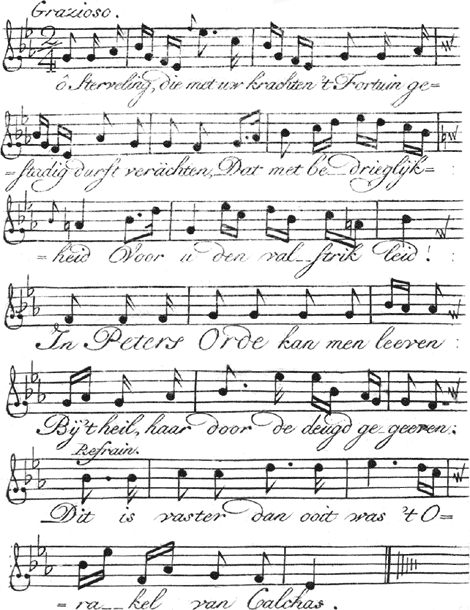 Grazioso.
2/4
ô Sterveling, die met uw krachten 't Fortuin ge=
=stadig durft verächten, Dat met be__drieglijk=:
=heid Voor u den val__strik leid!:
In Peters Orde kan men leeren:
Bij 't heil, haar door de deugd ge-geeven:
Refrain.
Dit is vaster dan ooit was 't O=
=ra__kel van Calchas.